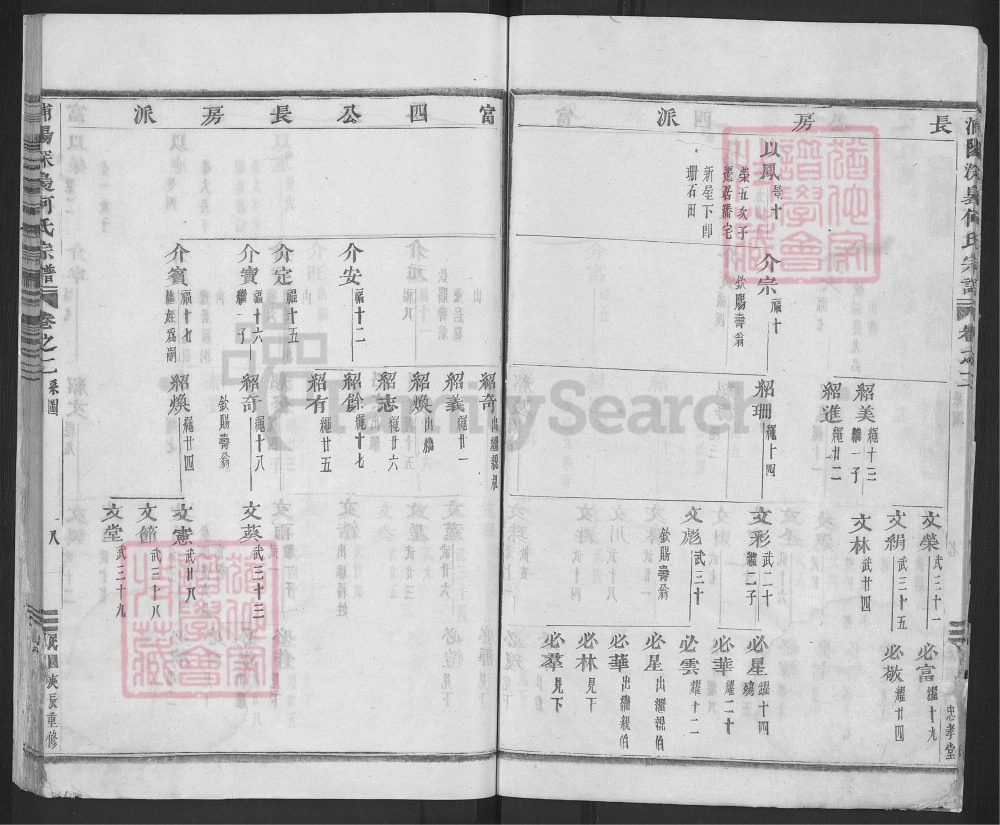 長房派
以鳳 㝵十
榮五次子
遷居潘宅
新屋下卽
珊石田
介宗 福十
欽賜壽翁
紹美 繩十三
繼一子
紹進 繩廿二
紹珊 繩十四
文榮 武三十一
文絹 武三十五
文林 武廿四
文彩 武二十
繼二子
文彪 武三十
欽賜壽翁
必富 耀十九
必敬 耀廿四
必星 耀十四
殤
必華 耀二十
必雲 耀十二
必星 出繼親伯
必華 出繼親伯
必林 見下
必羣 見下
忠孝堂
富四公長房派
介安 福十二
介定 福十五
介寶 福十六
繼一子
介賓 福十七
繼姪爲嗣
紹奇 出繼親叔
紹義 繩廿一
紹煥 出繼
紹志 繩廿六
紹餘 繩十七
紹有 繩廿五
紹奇 繩十八
欽賜壽翁
紹煥 繩廿四
文葵 武三十三
文憲 武廿八
文節 武三十八
文堂 武三十九
浦陽深裊何氏宗譜
卷之二 系圖
八
民國庚辰重修
FamilySearch